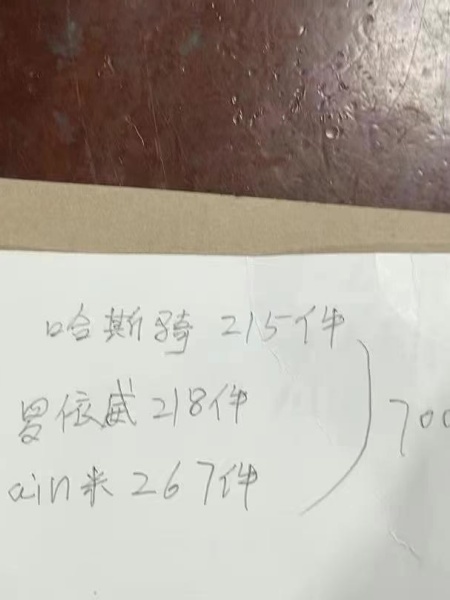 哈斯骑 215件
罗依威 218件
ain米 267件
700